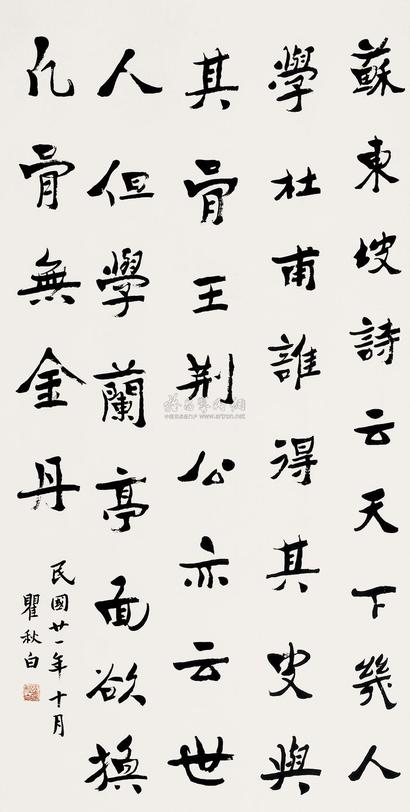 蘇東坡詩云天下幾人
學杜甫誰得其皮與
其骨王荆公亦云世
人但學蘭亭面欲換
凡骨無金丹
民國廿一年十月
瞿秋白